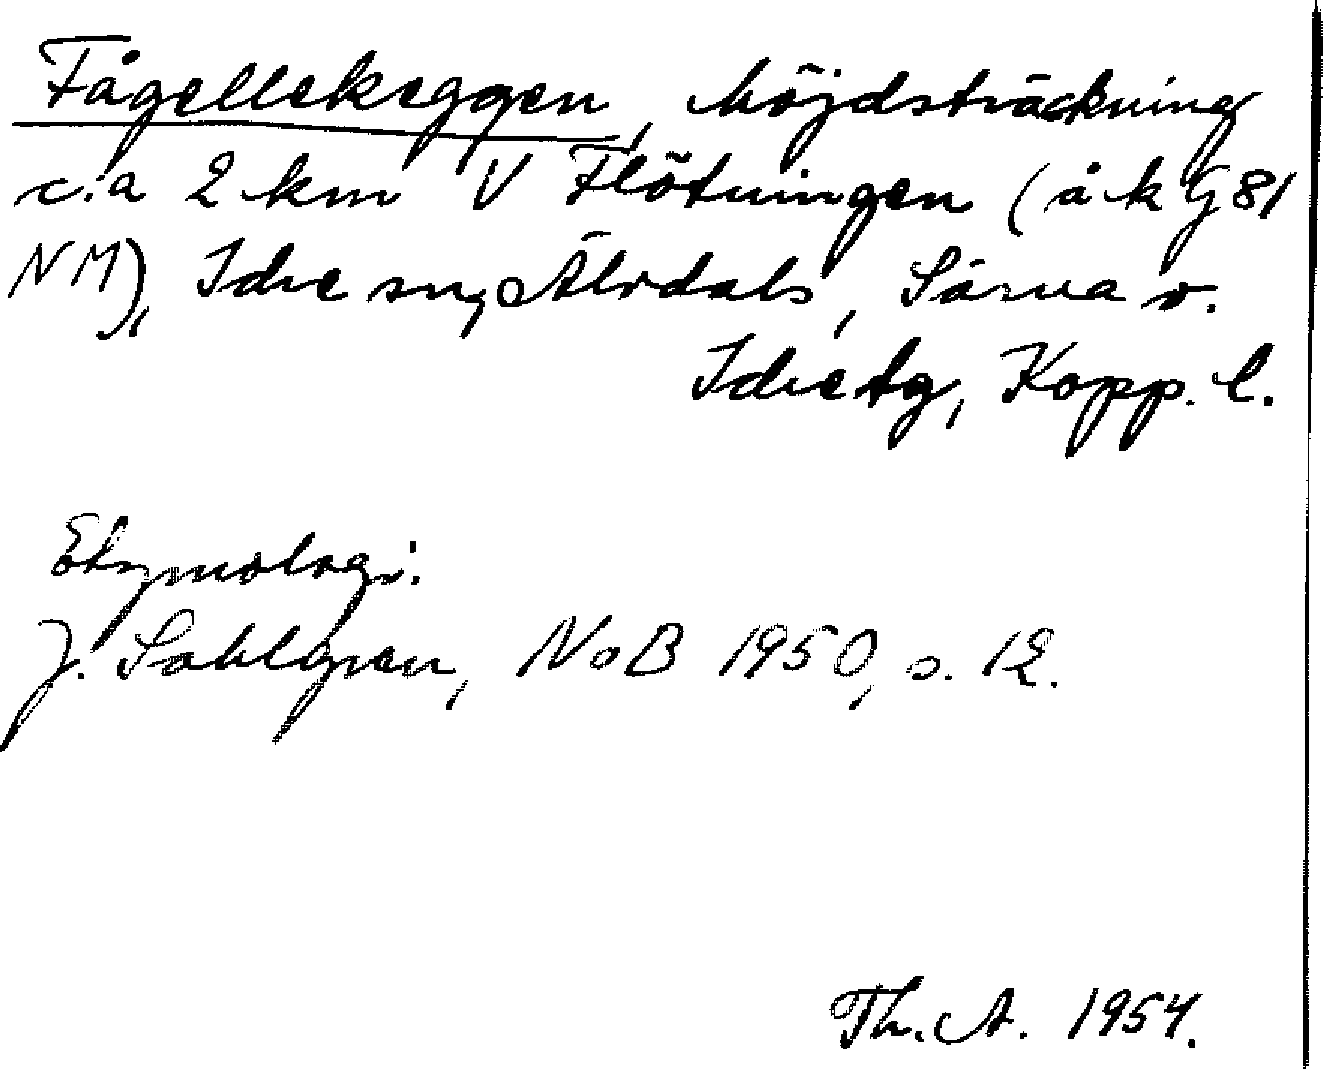 Fågellekeggen, höjdsträckning
c:a 2 km V Flötningen (å k G 81
NM), Idre sn, Älvdals, Särna o.
Idre tg, Kopp. l.
Etymologi:
J. Sahlgren, NoB 1950, s. 12.
Th. A. 1954.